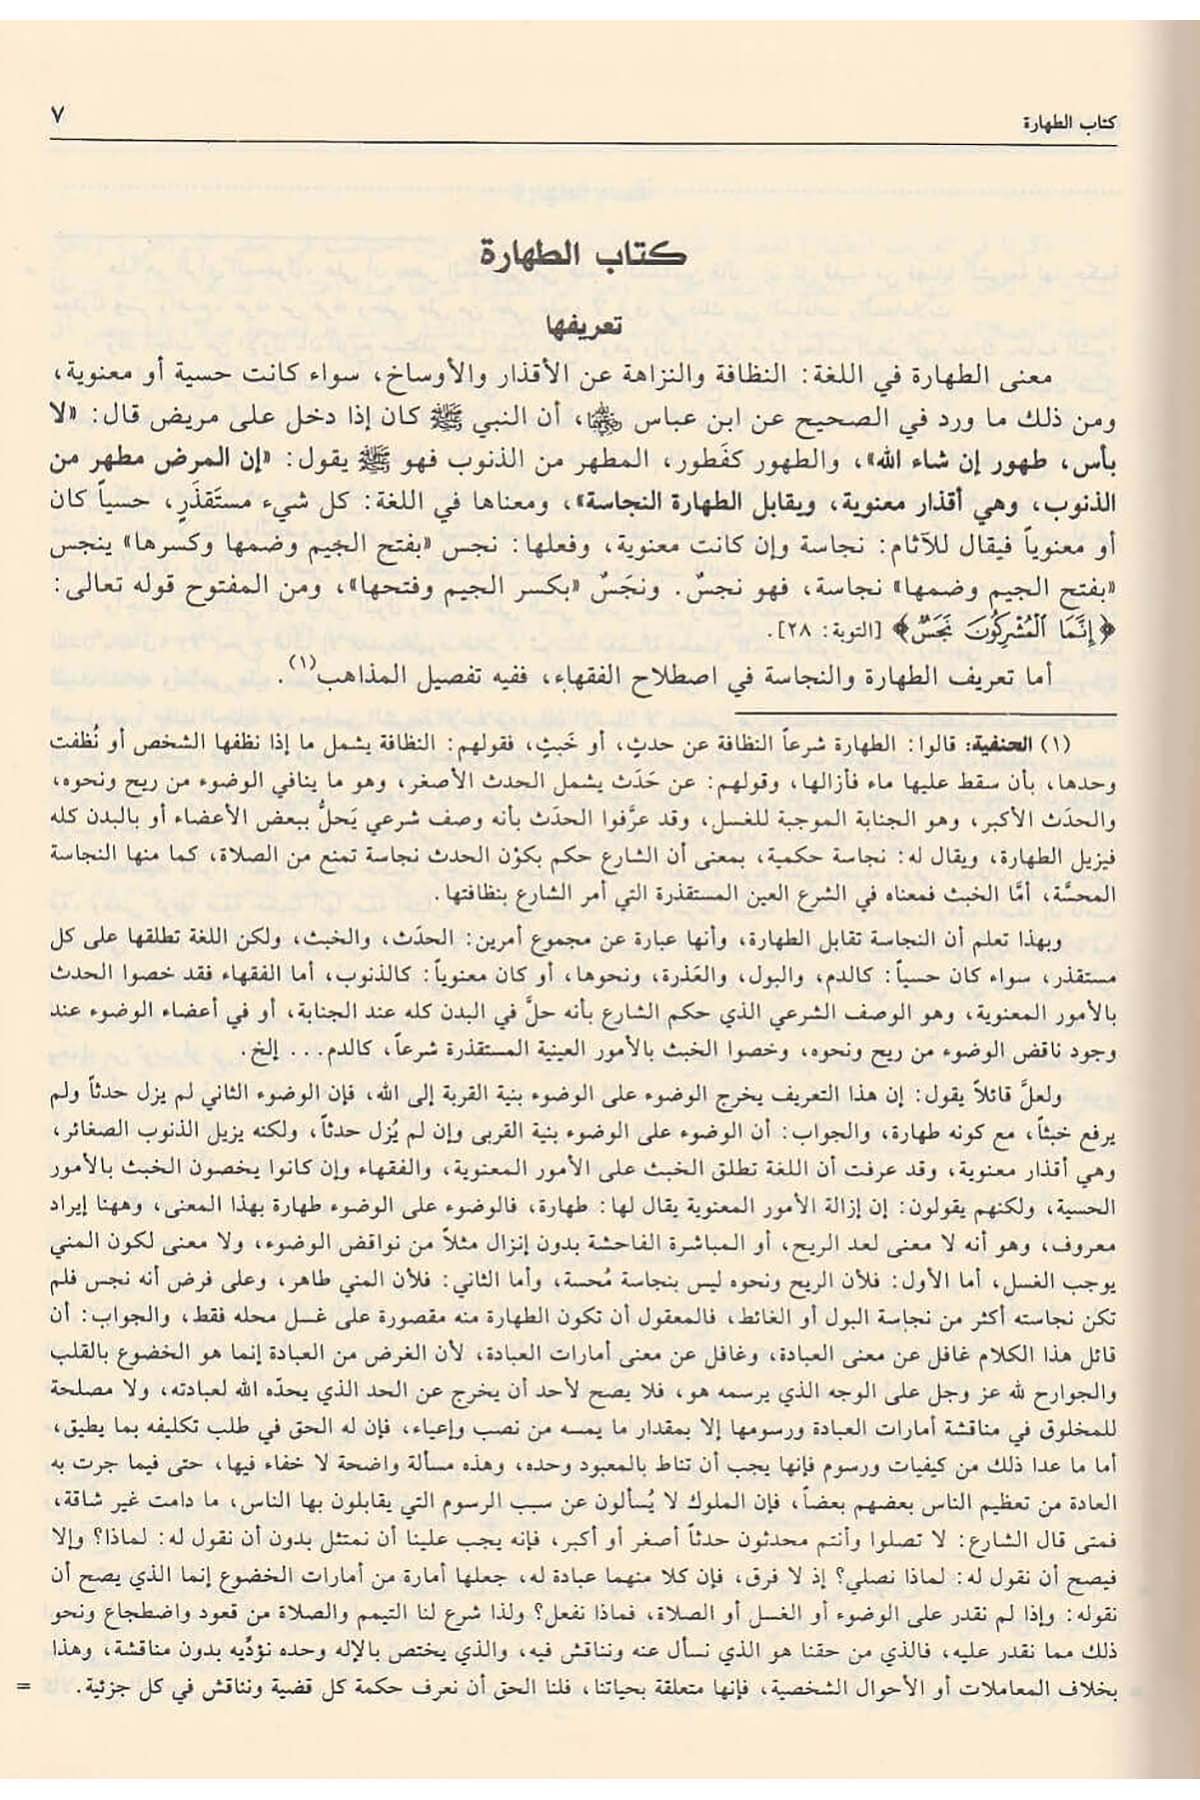 كتاب الطهارة
٧
كتاب الطهارة
تعريفها
معنى الطهارة في اللغة: النظافة والنزاهة عن الأقذار والأوساخ، سواء كانت حسية أو معنوية،
ومن ذلك ما ورد في الصحيح عن ابن عباس رضي الله عنهما، أن النبي ﷺ كان إذا دخل على مريض قال: «لا
بأس، طهور إن شاء الله»، والطهور كفَطور، المطهر من الذنوب فهو ﷺ يقول: «إن المرض مطهر من
الذنوب، وهي أقذار معنوية، ويقابل الطهارة النجاسة»، ومعناها في اللغة: كل شيء مستَقذَرٍ، حسياً كان
أو معنوياً فيقال للآثام: نجاسة وإن كانت معنوية، وفعلها: نجس «بفتح الجيم وضمها وكسرها» ينجس
«بفتح الجيم وضمها» نجاسة، فهو نجسٌ. ونجَسٌ «بكسر الجيم وفتحها»، ومن المفتوح قوله تعالى:
﴿إِنَّمَا الْمُشْرِكُونَ نَجَسٌ﴾ [التوبة: ٢٨].
أما تعريف الطهارة والنجاسة في اصطلاح الفقهاء، ففيه تفصيل المذاهب(١).
(١) الحنفية: قالوا: الطهارة شرعاً النظافة عن حدثٍ، أو خَبثٍ، فقولهم: النظافة يشمل ما إذا نظفها الشخص أو نُظفت
وحدها، بأن سقط عليها ماء فأزالها، وقولهم: عن حَدَث يشمل الحدث الأصغر، وهو ما ينافي الوضوء من ريح ونحوه،
والحدَث الأكبر، وهو الجنابة الموجبة للغسل، وقد عرَّفوا الحدَث بأنه وصف شرعي يَحلُّ ببعض الأعضاء أو بالبدن كله
فيزيل الطهارة، ويقال له: نجاسة حكمية، بمعنى أن الشارع حكم بكوْن الحدث نجاسة تمنع من الصلاة، كما منها النجاسة
المحسَّة، أمَّا الخبث فمعناه في الشرع العين المستقذرة التي أمر الشارع بنظافتها.
وبهذا تعلم أن النجاسة تقابل الطهارة، وأنها عبارة عن مجموع أمرين: الحدَث، والخبث، ولكن اللغة تطلقها على كل
مستقذر، سواء كان حسياً: كالدم، والبول، والعَذرة، ونحوها، أو كان معنوياً: كالذنوب، أما الفقهاء فقد خصوا الحدث
بالأمور المعنوية، وهو الوصف الشرعي الذي حكم الشارع بأنه حلَّ في البدن كله عند الجنابة، أو في أعضاء الوضوء عند
وجود ناقض الوضوء من ريح ونحوه، وخصوا الخبث بالأمور العينية المستقذرة شرعاً، كالدم... إلخ.
ولعلَّ قائلاً يقول: إن هذا التعريف يخرج الوضوء على الوضوء بنية القربة إلى الله، فإن الوضوء الثاني لم يزل حدثاً ولم
يرفع خبثاً، مع كونه طهارة، والجواب: أن الوضوء على الوضوء بنية القربى وإن لم يُزل حدثاً، ولكنه يزيل الذنوب الصغائر،
وهي أقذار معنوية، وقد عرفت أن اللغة تطلق الخبث على الأمور المعنوية، والفقهاء وإن كانوا يخصون الخبث بالأمور
الحسية، ولكنهم يقولون: إن إزالة الأمور المعنوية يقال لها: طهارة، فالوضوء على الوضوء طهارة بهذا المعنى، وههنا إيراد
معروف، وهو أنه لا معنى لعد الريح، أو المباشرة الفاحشة بدون إنزال مثلاً من نواقض الوضوء، ولا معنى لكون المني
يوجب الغسل، أما الأول: فلأن الريح ونحوه ليس بنجاسة مُحسة، وأما الثاني: فلأن المني طاهر، وعلى فرض أنه نجس فلم
تكن نجاسته أكثر من نجاسة البول أو الغائط، فالمعقول أن تكون الطهارة منه مقصورة على غسل محله فقط، والجواب: أن
قائل هذا الكلام غافل عن معنى العبادة، وغافل عن معنى أمارات العبادة، لأن الغرض من العبادة إنما هو الخضوع بالقلب
والجوارح لله عز وجل على الوجه الذي يرسمه هو، فلا يصح لأحد أن يخرج عن الحد الذي يحدّه الله لعبادته، ولا مصلحة
للمخلوق في مناقشة أمارات العبادة ورسومها إلا بمقدار ما يمسه من نصب وإعياء، فإن له الحق في طلب تكليفه بما يطيق،
أما ما عدا ذلك من كيفيات ورسوم فإنها يجب أن تناط بالمعبود وحده، وهذه مسألة واضحة لا خفاء فيها، حتى فيما جرت به
العادة من تعظيم الناس بعضهم بعضاً، فإن الملوك لا يُسألون عن سبب الرسوم التي يقابلون بها الناس، ما دامت غير شاقة،
فمتى قال الشارع: لا تصلوا وأنتم محدثون حدثاً أصغر أو أكبر، فإنه يجب علينا أن نمتثل بدون أن نقول له: لماذا؟ وإلا
فيصح أن نقول له: لماذا نصلي؟ إذ لا فرق، فإن كلا منهما عبادة له، جعلها أمارة من أمارات الخضوع إنما الذي يصح أن
نقوله: وإذا لم نقدر على الوضوء أو الغسل أو الصلاة، فماذا نفعل؟ ولذا شرع لنا التيمم والصلاة من قعود واضطجاع ونحو
ذلك مما نقدر عليه، فالذي من حقنا هو الذي نسأل عنه ونناقش فيه، والذي يختص بالإله وحده نؤدّيه بدون مناقشة، وهذا
بخلاف المعاملات أو الأحوال الشخصية، فإنها متعلقة بحياتنا، فلنا الحق أن نعرف حكمة كل قضية ونناقش في كل جزئية. =